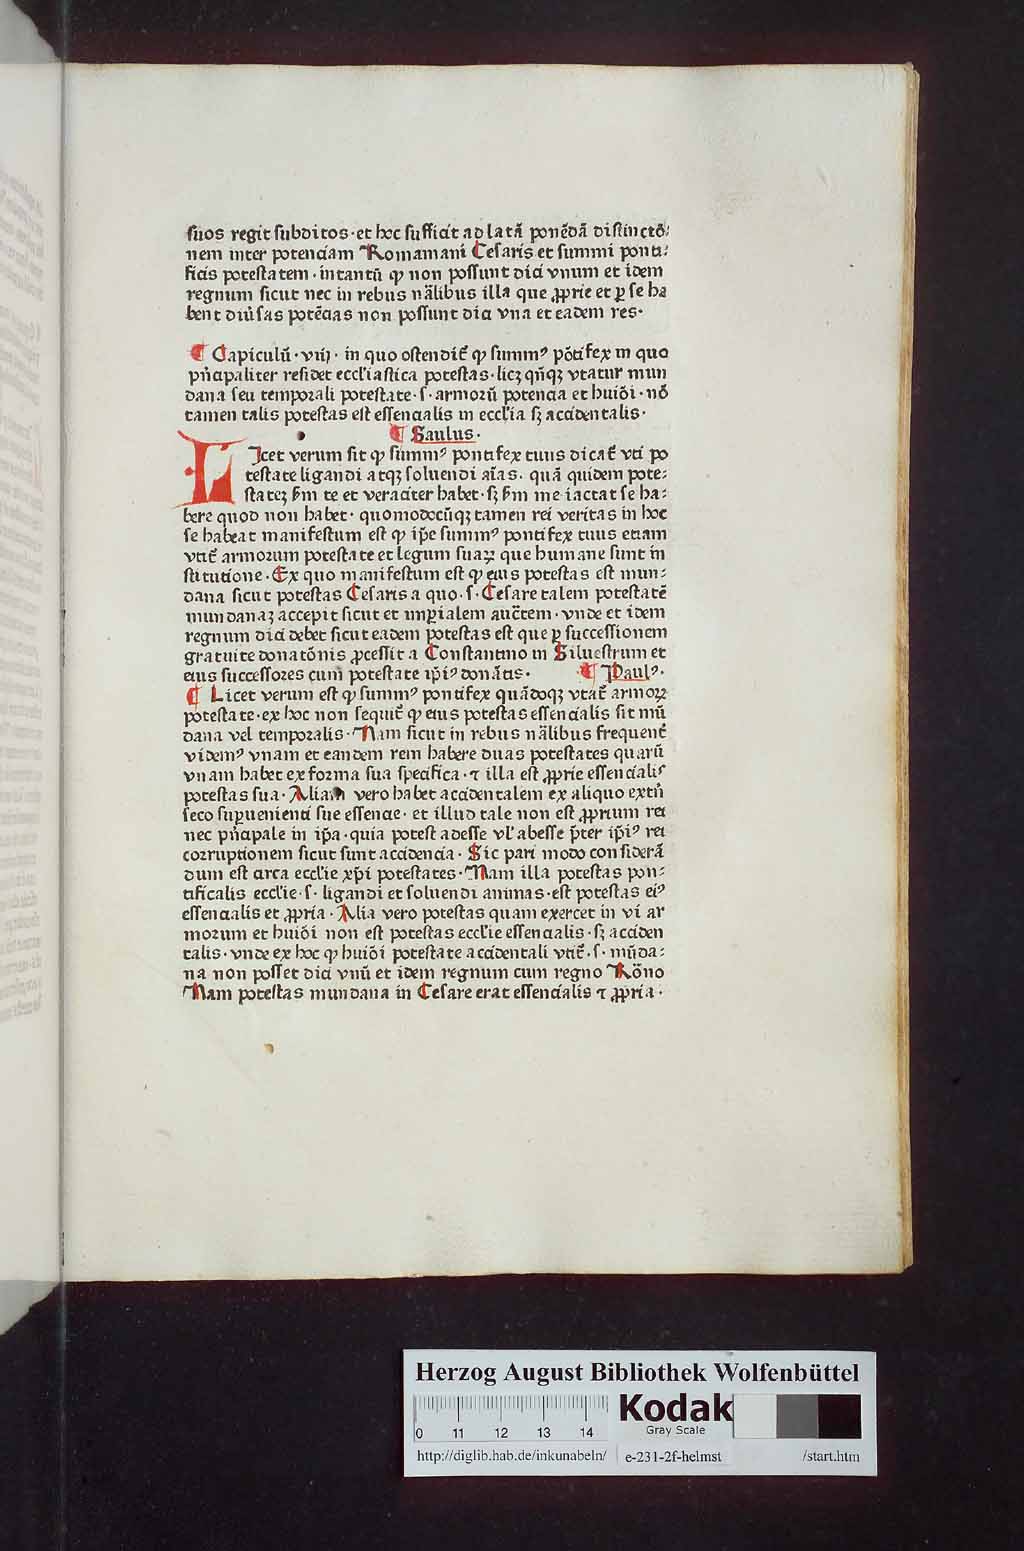 suos regit subditos·et hoc sufficit ad latā ponēdā distinctō⸗
nem inter potenciam Romamani Cesaris et summi ponti⸗
ficis potestatem·intantū ꝙ non possunt dici vnum et idem
regnum sicut nec in rebus nālibus illa que ꝓprie et ꝑ se ha
bent diu͛sas potēcias non possunt dici vna et eadem res·
¶ Capiculū·viij· in quo ostendit᷑ ꝙ summꝰ pōtifex in quo
pn̄cipaliter residet eccl'iastica potestas·licꝫ qn̄qꝫ vtatur mun
dana seu temporali potestate·s·armorū potencia et huiōi·nō
tamen talis potestas est essencialis in eccl'ia sꝫ accidentalis·
¶ Saulus·
LIcet verum sit ꝙ summꝰ pontifex tuus dicat᷑ vti po
testate ligandi atqꝫ soluendi aīas. quā quidem pote⸗
statēꝫ ẜm te et veraciter habet·sꝫ ẜm me iactat se ha⸗
bere quod non habet· quomodocūqꝫ tamen rei veritas in hoc
se habeat manifestum est ꝙ ip̄e summꝰ pontifex tuus etiam
vtit᷑ armorum potestate et legum suaꝝ que humane sunt in
stitutione·Ex quo manifestum est ꝙ eius potestas est mun⸗
dana sicut potestas Cesaris a quo·s·Cesare talem potestatē
mundanaꝫ accepit sicut et imꝑialem auc̄tem·vnde et idem
regnum dici debet sicut eadem potestas est que ꝑ successionem
gratuite donatōnis ꝓcessit a Constantino in Siluestrum et
eius successores cum potestate ip̄iꝰ donātis· ¶ Paulꝰ·
¶ Licet verum est ꝙ summꝰ pontifex quādoqꝫ vtat᷑ armoꝝ
potestate·ex hoc non sequit᷑ ꝙ eius potestas essencialis sit mū
dana vel temporalis·Nam sicut in rebus nālibus frequent᷑
videmꝰ vnam et eandem rem habere duas potestates quarū
vnam habet ex forma sua specifica·⁊ illa est ꝓprie essencialis
potestas sua·Aliam vero habet accidentalem ex aliquo extn̄
seco suꝑuenienti sue essencie·et illud tale non est ꝓprium rei
nec pn̄cipale in ip̄a·quia potest adesse vl' abesse p̄ter ip̄iꝰ rei
corruptionem sicut sunt accidencia·Sic pari modo considerā
dum est circa eccl'ie xp̄i potestates·Nam illa potestas pon⸗
tificalis eccl'ie·s·ligandi et soluendi animas·est potestas eiꝰ
essencialis et ꝓpria·Alia vero potestas quam exercet in vi ar
morum et huiōi non est potestas eccl'ie essencialis·sꝫ acciden
talis·vnde ex hoc ꝙ huiōi potestate accidentali vtit᷑·s·mūda⸗
na non posset dici vnū et idem regnum cum regno Rōno
Nam potestas mundana in Cesare erat essencialis ⁊ ꝓpria·
Herzog August Bibliothek Wolfenbüttel
0 11 12 13 14
Kodak
Gray Scale
http://diglib.hab.de/inkunabeln/ e-231-2f-helmst /start.htm